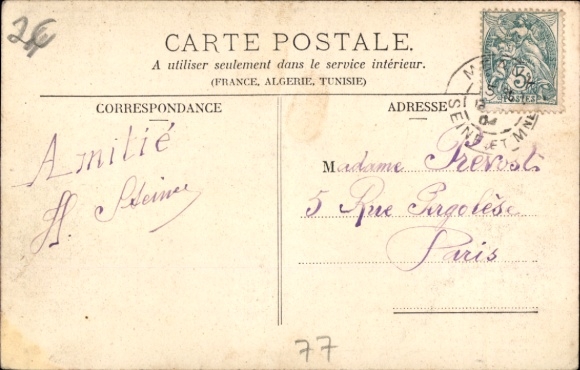 26
CARTE POSTALE.
A utiliser seulement dans le service intérieur.
(FRANCE, ALGERIE, TUNISIE)
CORRESPONDANCE
ADRESSE
5
POSTES
SEINE-ET-MNE
04
Amitié
H. Steine
Madame Prévost
5 Rue Pergolèse
Paris
77